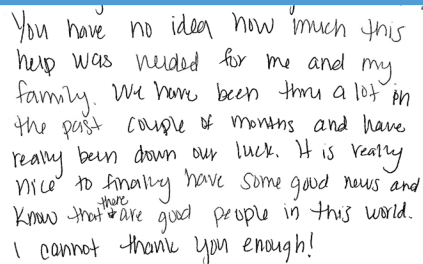 You have no idea how much this
help was needed for me and my
family. We have been thru a lot in
the past couple of months and have
really been down our luck. It is really
nice to finally have some good news and
know that there are good people in this world.
I cannot thank you enough!